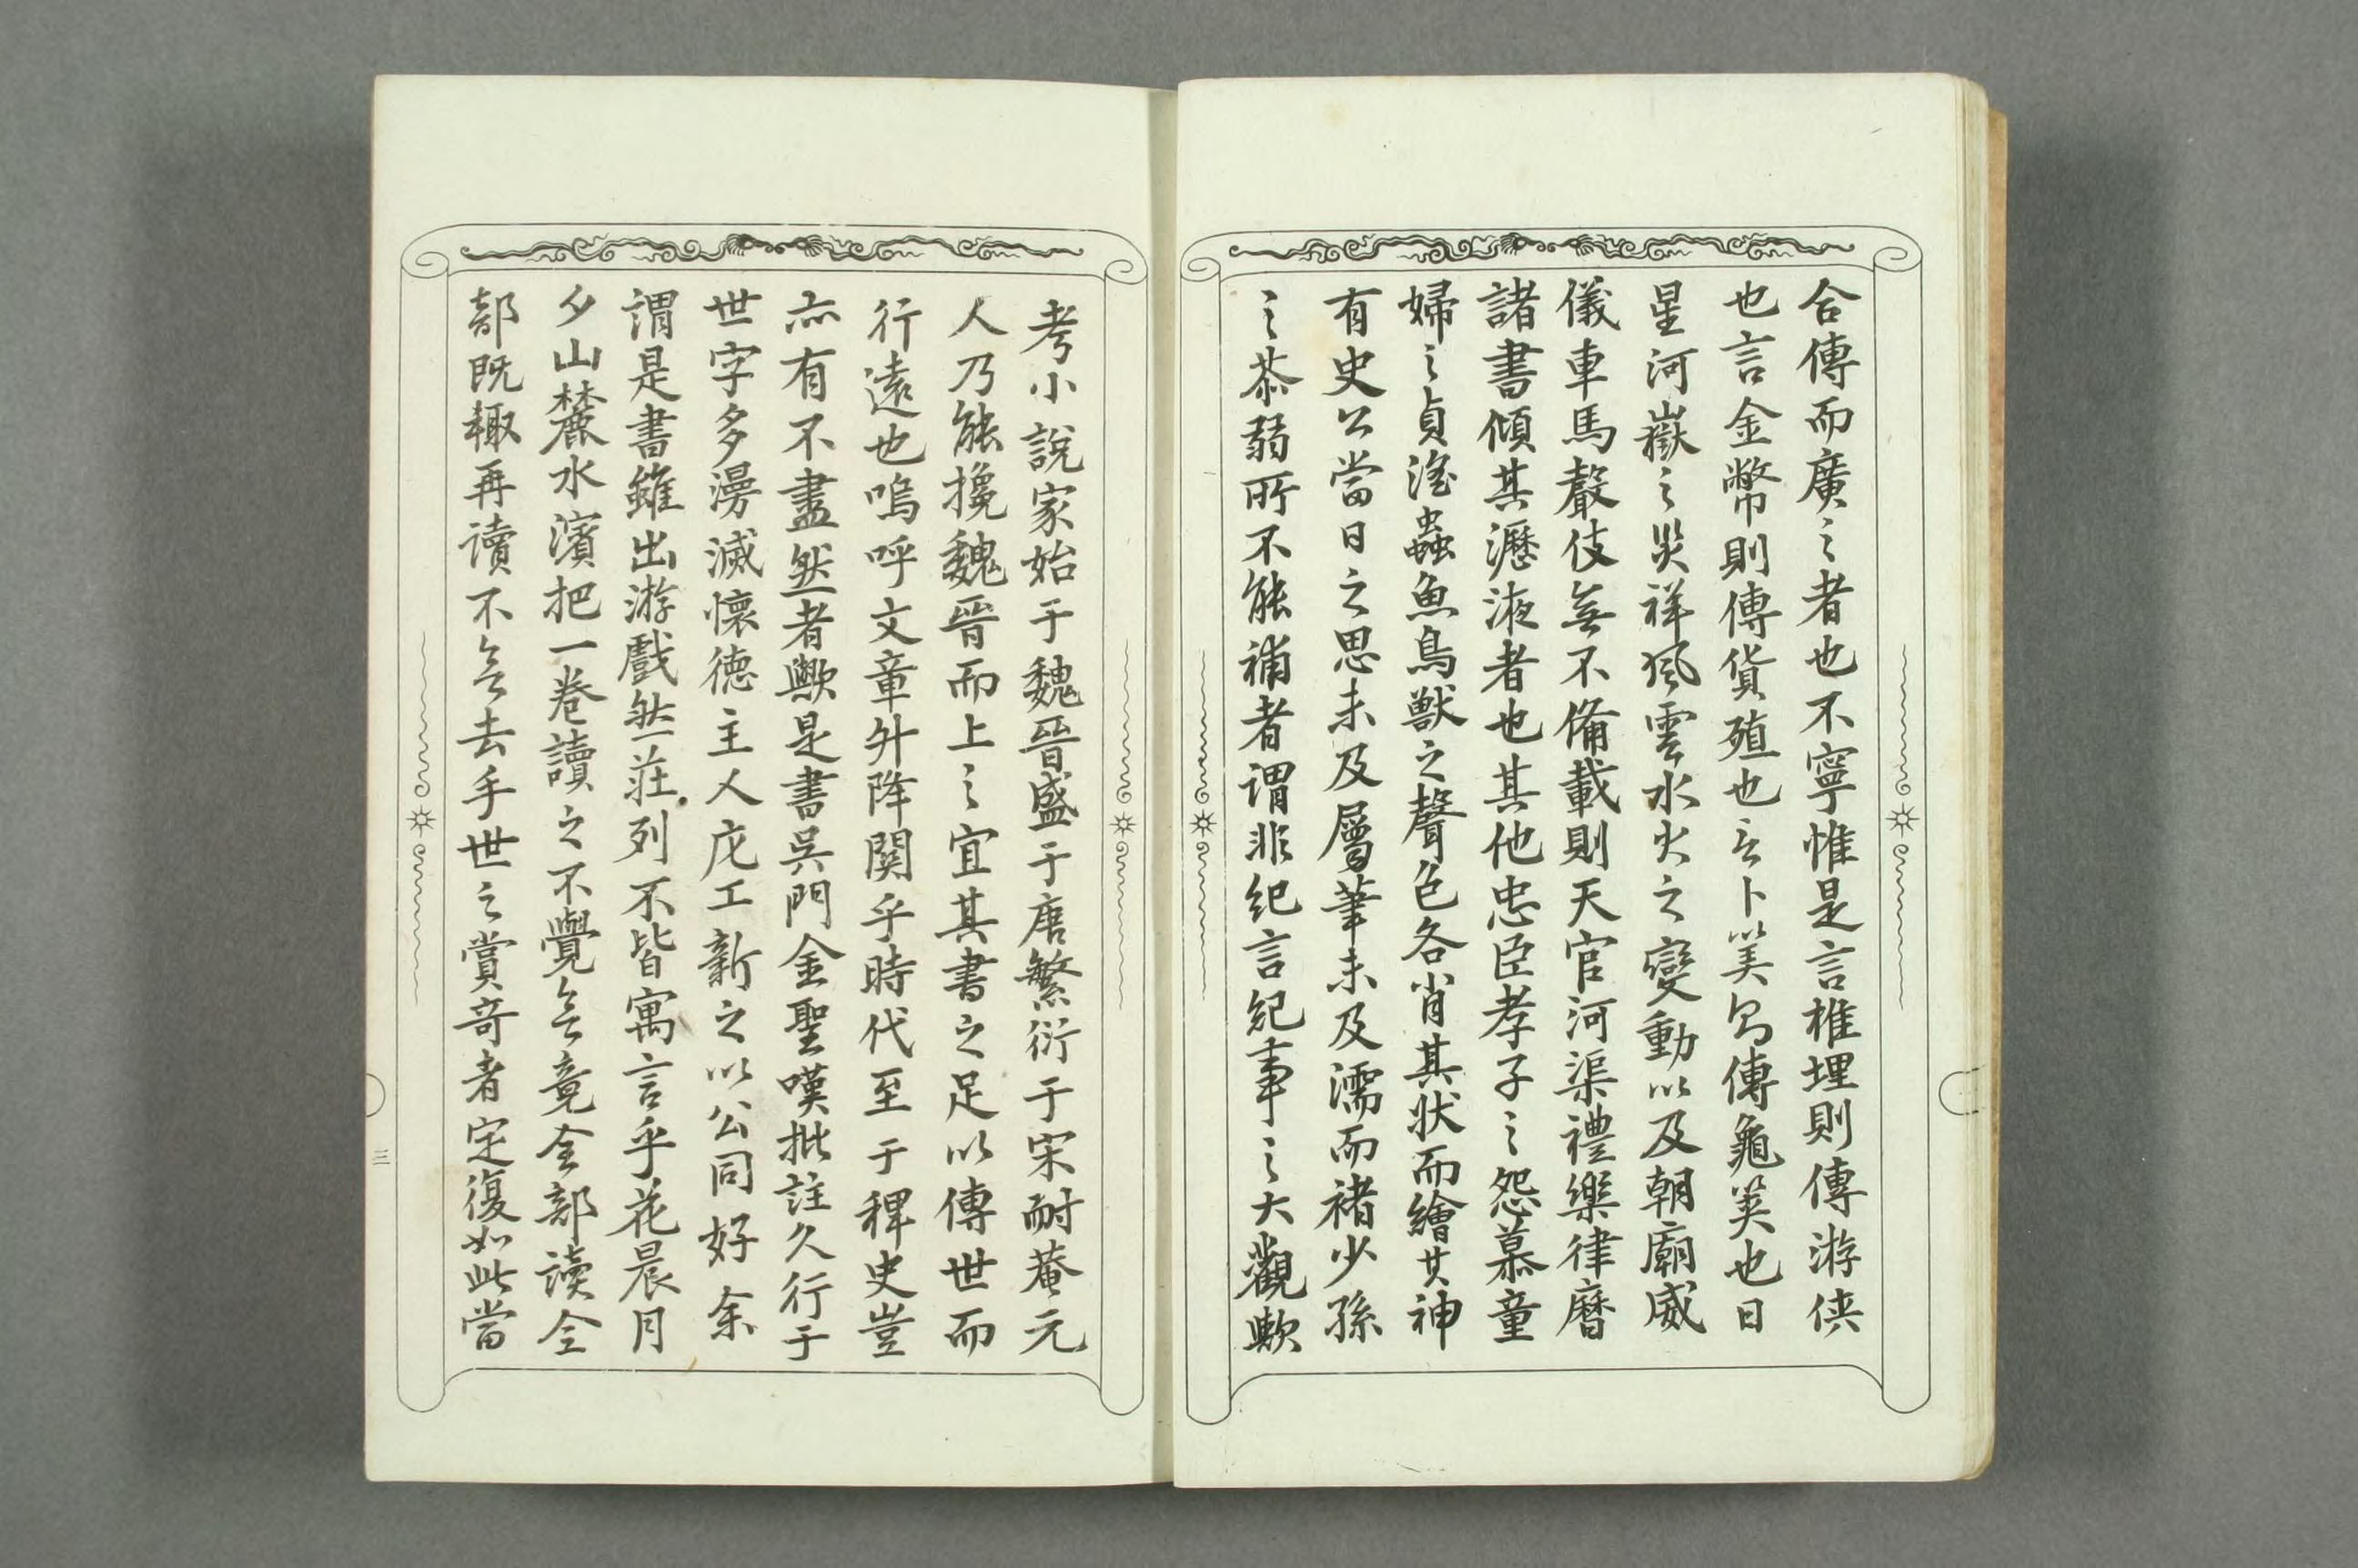 合傳而廣之者也不寧惟是言椎埋則傳游俠
也言金幣則傳貨殖也言卜筭即傳龜筴也日
星河嶽之災祥風雲水火之變動以及朝廟威
儀車馬聲伎無不備載則天官河渠禮樂律曆
諸書傾其瀝液者也其他忠臣孝子之怨慕童
婦之貞淫蟲魚鳥獸之聲色各肖其狀而繪其神
有史公當日之思未及屬筆未及濡而褚少孫
之荼弱所不能補者謂非紀言紀事之大觀歟
考小說家始于魏晉盛于唐繁衍于宋耐菴元
人乃能攙魏晉而上之宜其書之足以傳世而
行遠也嗚呼文章升降關乎時代至于稗史豈
亦有不盡然者歟是書吳門金聖嘆批註久行于
世字多漫滅懷德主人庀工新之以公同好余
謂是書雖出游戲然莊列不皆寓言乎花晨月
夕山麓水濱把一卷讀之不覺令竟全部讀全
部既輒再讀不令去手世之賞奇者定復如此當
三